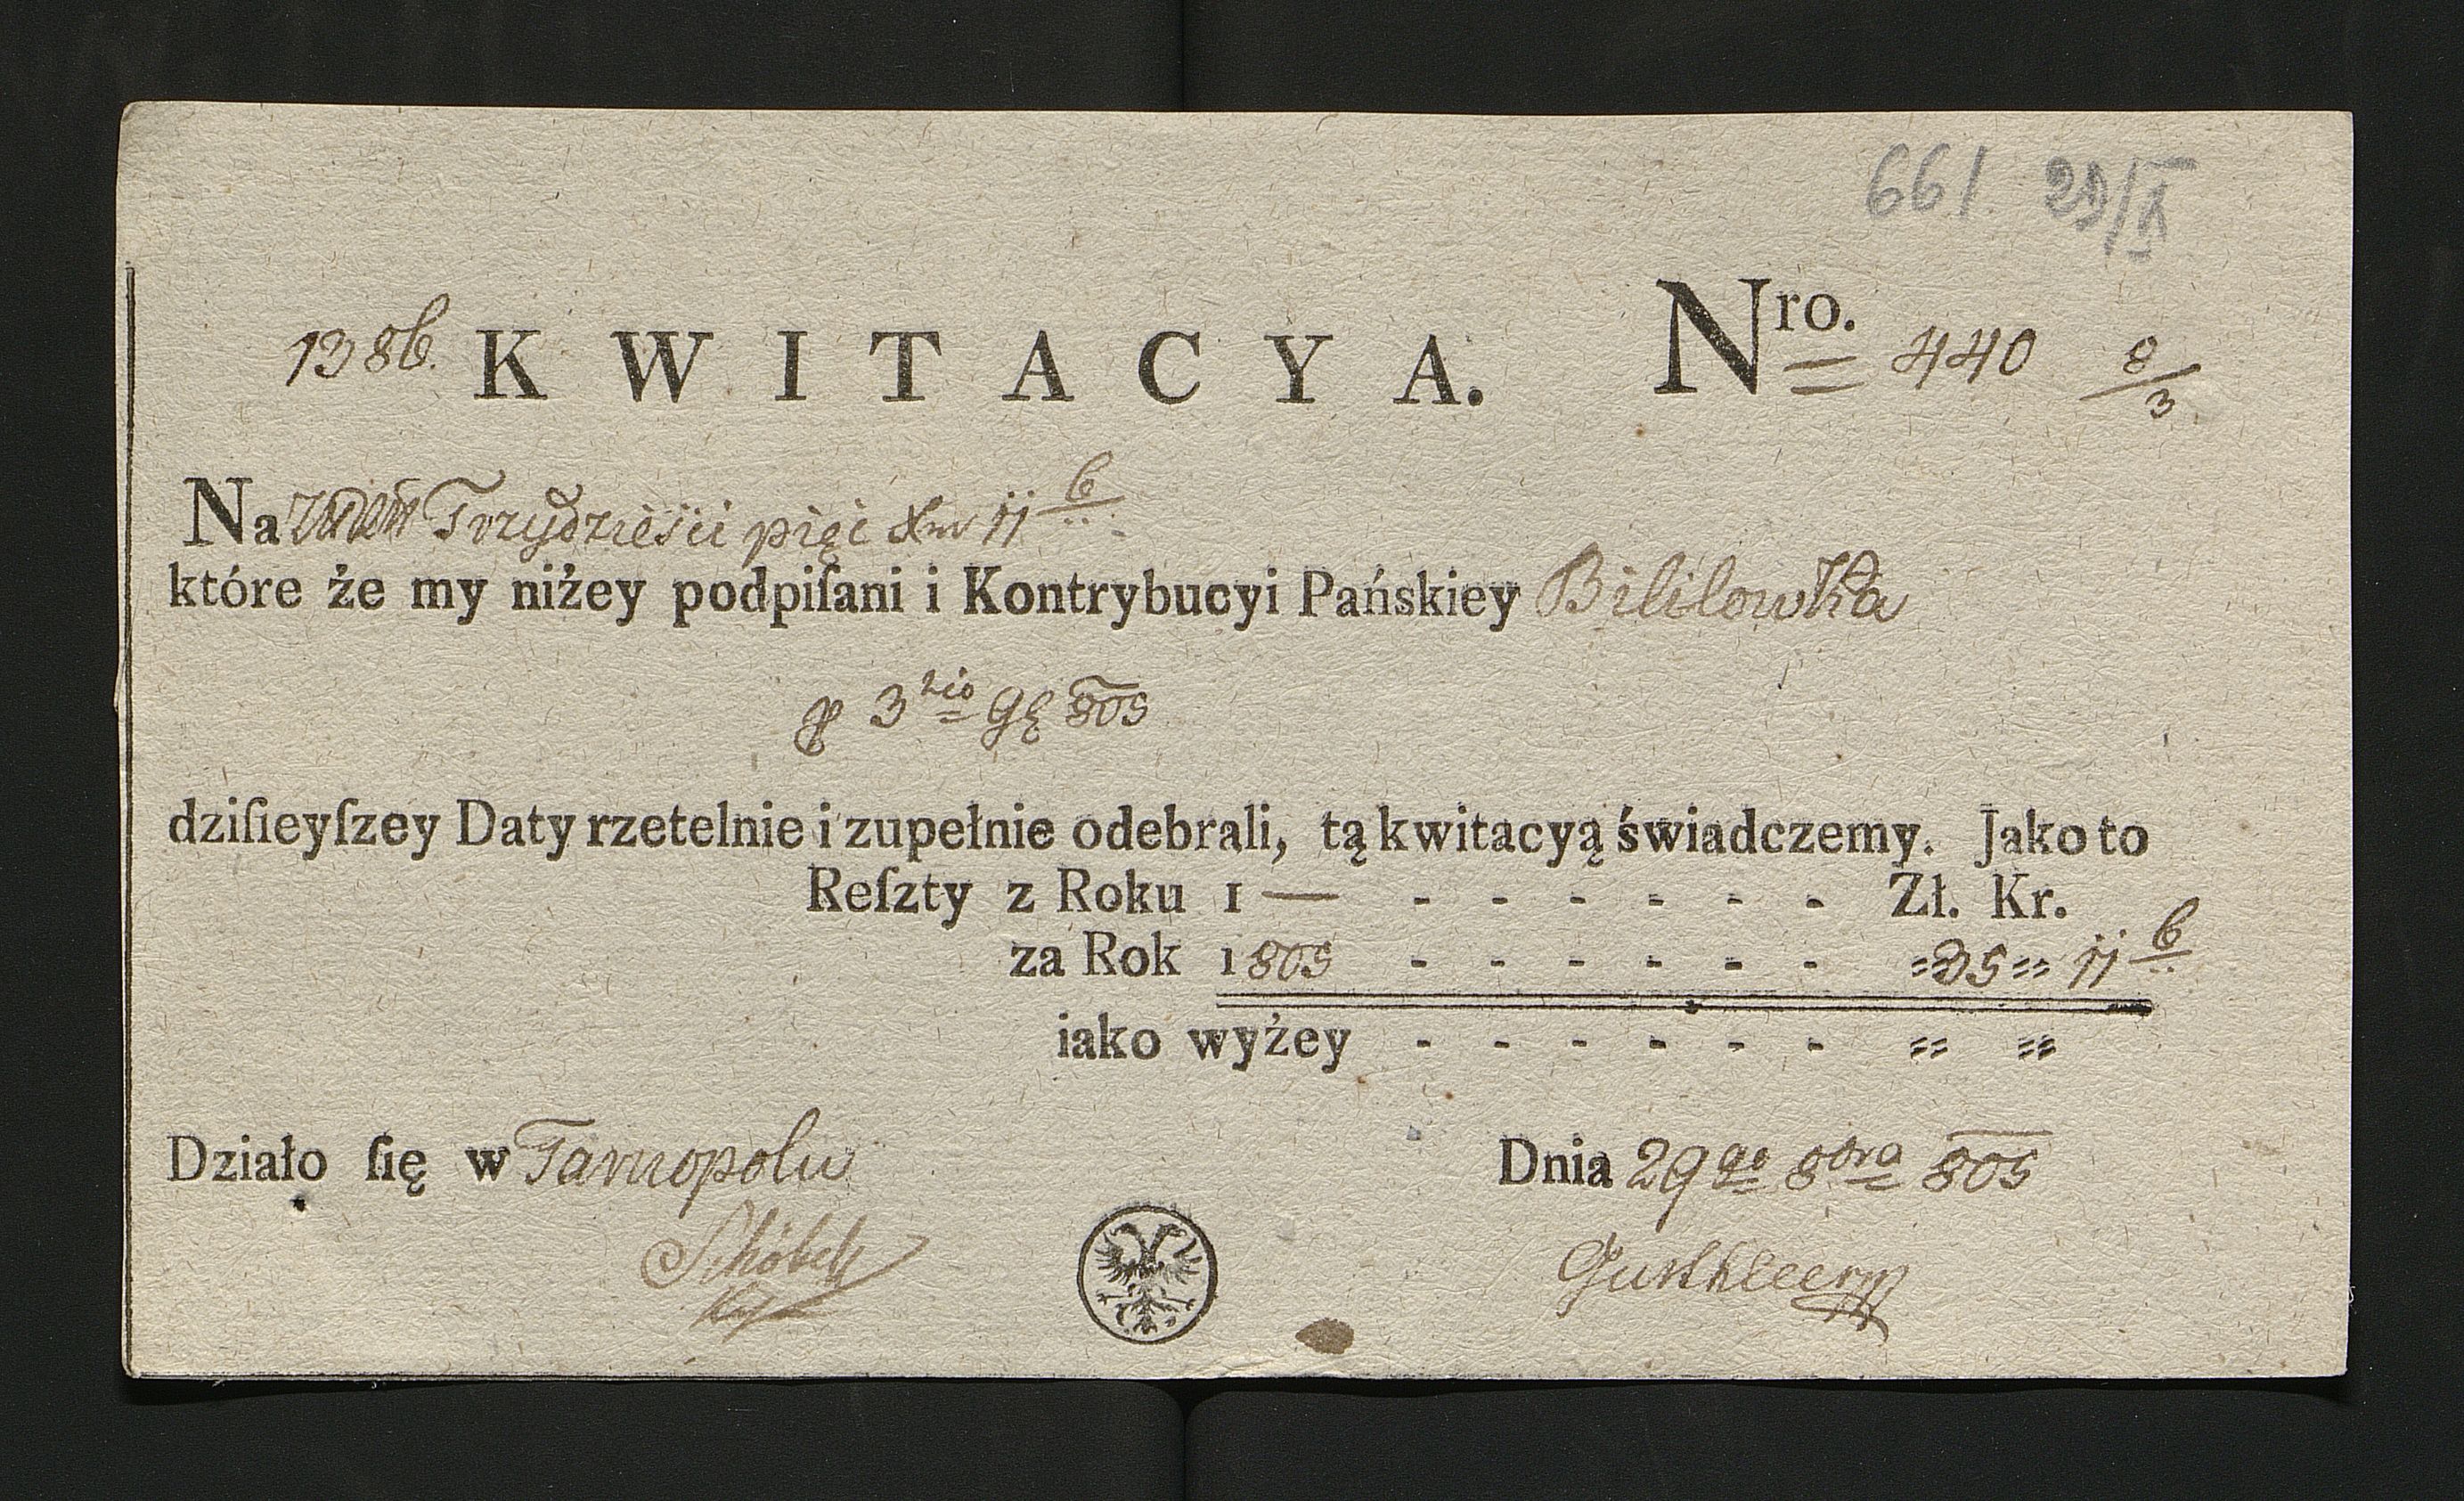 661. 29/X
1386. KWITACYA. Nro. 440 8/3
Na Trzydzieści pięć Xr 11 6/..
które że my niżey podpiſani i Kontrybucyi Pańskiey Bililowka
3tio 805
dziſieyſzey Daty rzetelnie i zupełnie odebrali, tą kwitacyą świadczemy. Jako to
Reſzty z Roku 1— - - - - - - Zł. Kr.
za Rok 1805 - - - - - - „35„ 11 6/..
iako wyżey - - - - - - „ „
Działo ſię w Tarnopolu Dnia 29go 8bra 805